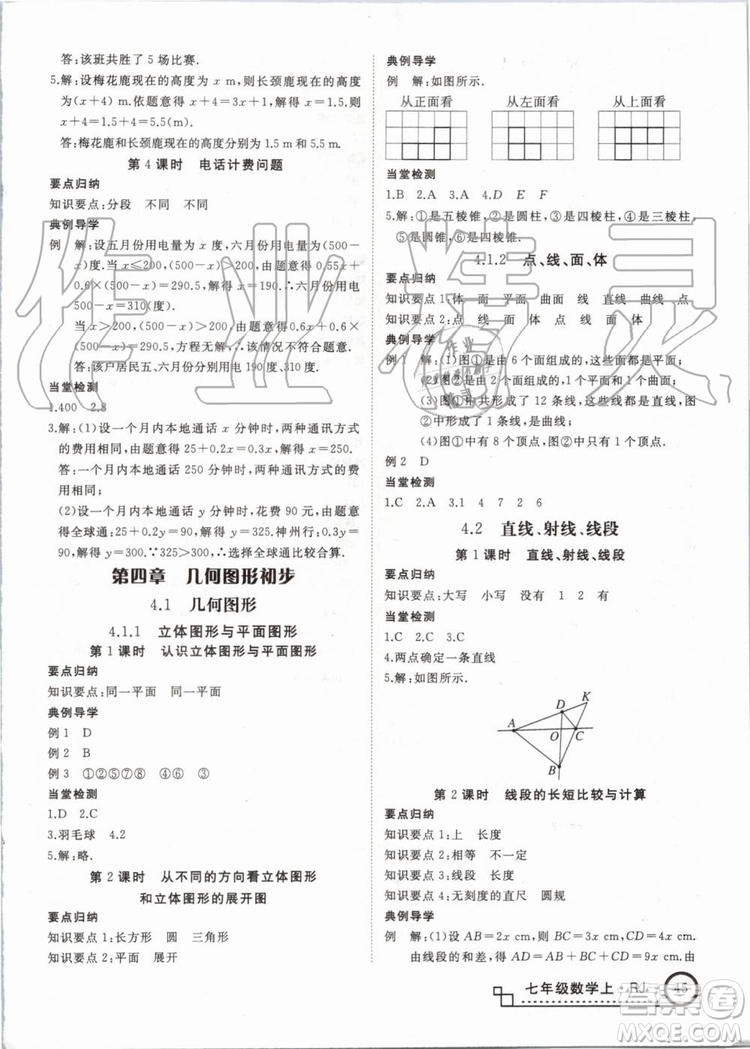 答:该班共胜了 5 场比赛.
5.解:设梅花鹿现在的高度为 x m,则长颈鹿现在的高度
为(x+4) m. 依题意得 x+4=3x+1,解得 x=1.5.
所以 x+4=1.5+4=5.5(m).
答:梅花鹿和长颈鹿现在的高度分别为 1.5 m 和 5.5 m.
第 4 课时 电话计费问题
要点归纳
知识要点:分段 不同 不同
典例导学
例 解:设五月份用电量为 x 度,六月份用电量为(500−
x)度. 当 x≤200,500−x>200 时,根据题意得 0.55x+
0.6×(500−x)=290.5,解得 x=190,即 500−x=
500−x=310(度).
当 x>200,(500−x)>200 时,根据题意得 0.6x+0.6×
(500−x)=290.5,方程无解,∴该情况不符合题意.
答:该户居民五、六月份分别用电 190 度、310 度.
当堂检测
1.400 2.8
3.解:(1)设一个月内本地通话 x 分钟时,两种通讯方式
的费用相同.由题意得 25+0.2x=0.3x,解得 x=250.
答:一个月内本地通话 250 分钟时,两种通讯方式的
费用相同;
(2)设一个月内本地通话 y 分钟时,花费 90 元,由题意
得全球通:25+0.2y=90,解得 y=325.神州行:0.3y=
90,解得 y=300.∵325>300,∴选择全球通比较合算.
第四章 几何图形初步
4.1 几何图形
4.1.1 立体图形与平面图形
第 1 课时 认识立体图形与平面图形
要点归纳
知识要点:同一平面 同一平面
典例导学
例 1 D
例 2 B
例 3 ①②⑤⑦⑧ ③④⑥
当堂检测
1.D 2.C
3.羽毛球 4.2
5.解:略.
第 2 课时 从不同的方向看立体图形
和立体图形的展开图
要点归纳
知识要点 1:长方形 圆 三角形
知识要点 2:平面 展开
典例导学
例 解:如图所示.
从正面看 从左面看 从上面看
当堂检测
1.B 2.A 3.A 4.D E F
5.解:①是五棱锥,②是圆柱,③是四棱柱,④是三棱柱,
⑤是圆锥,⑥是四棱锥.
4.1.2 点、线、面、体
要点归纳
知识要点 1:体 面 平面 曲面 线 直线 曲线 点
知识要点 2:点 线 面 体 点 线 面 体
典例导学
例 1 解:(1)图①是由 6 个面组成的,图②是由 5 个面组
(3)图①中共形成了 12 条线,
图②中形成了 9 条线,这些线都是直的;
(4)图①中有 8 个顶点,图②中有 6 个顶点.
例 2 D
当堂检测
1.C 2.A 3.1 4 7 2 6
4.2 直线、射线、线段
第 1 课时 直线、射线、线段
要点归纳
知识要点:大写 小写 没有 1 2 有
当堂检测
1.C 2.C 3.C
4.两点确定一条直线
5.解:如图所示.
D K
A O C
B
第 2 课时 线段的长短比较与计算
要点归纳
知识要点 1:上 长度
知识要点 2:相等 不一定
知识要点 3:线段 长度
知识要点 4:无刻度的直尺 圆规
典例导学
例 解:(1)设 AB=2x cm,则 BC=3x cm,CD=4x cm.
由线段的和差,得 AD=AB+BC+CD=9x cm. 由
七年级数学上·RJ 45
作业精灵
答案卷
MXQE.COM